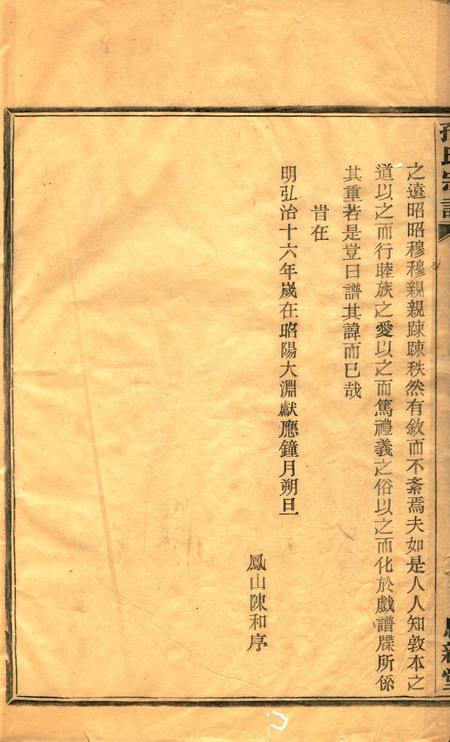 孫氏宗譜
之遠昭昭穆穆親親踈踈秩然有敘而不紊焉夫如是人人知敦本之
道以之而行睦族之愛以之而篤禮義之俗以之而化於戲譜牒所係
其重若是豈曰譜其諱而已哉
旹在
明弘治十六年歲在昭陽大淵獻應鐘月朔旦
鳳山陳和序